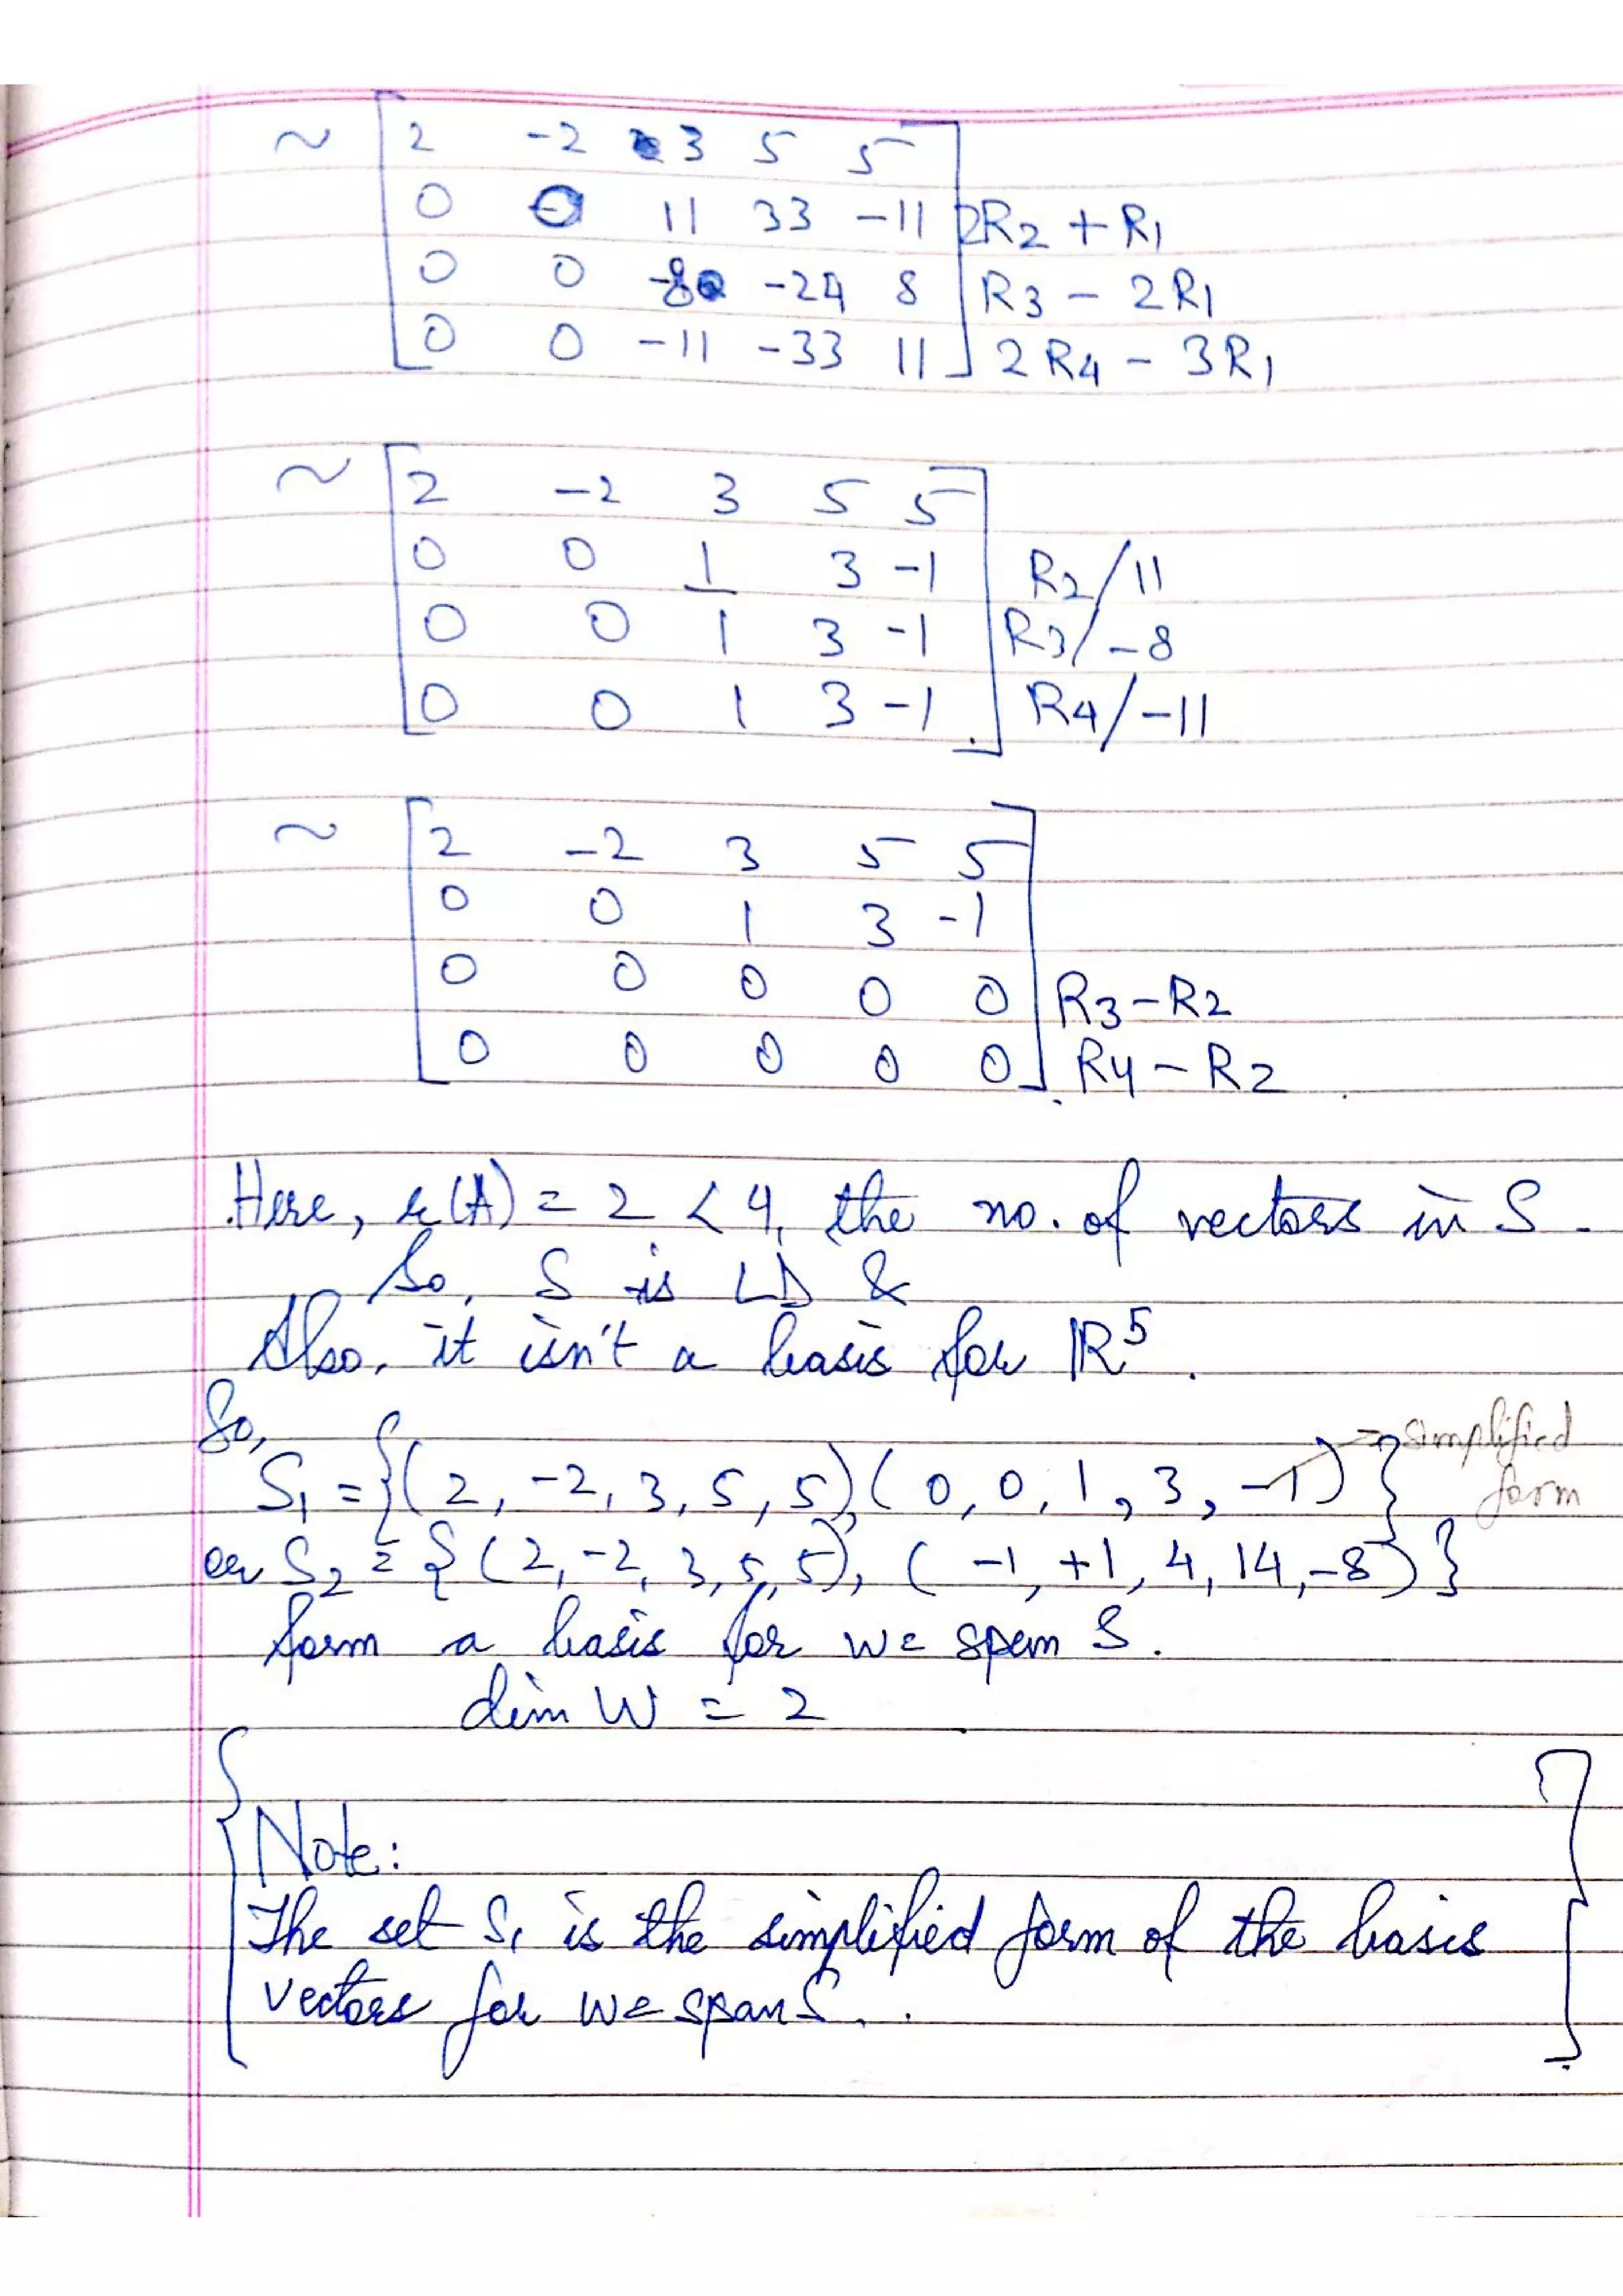 ~ [ 2 -2 3 5 5
0 0 11 33 -11 2R2 + R1
0 0 -8 -24 8 R3 - 2R1
0 0 -11 -33 11 ] 2R4 - 3R1
~ [ 2 -2 3 5 5
0 0 1 3 -1 R2/11
0 0 1 3 -1 R3/-8
0 0 1 3 -1 ] R4/-11
~ [ 2 -2 3 5 5
0 0 1 3 -1
0 0 0 0 0 R3-R2
0 0 0 0 0 ] R4-R2
Here, r(A) = 2 < 4, the no. of vectors in S.
So, S is LD &
Also, it isn't a basis for ℝ⁵.
So,
S₁ = {(2, -2, 3, 5, 5), (0, 0, 1, 3, -1)} → simplified form
or S₂ = {(2, -2, 3, 5, 5), (-1, +1, 4, 14, -8)}
form a basis for W = span S.
dim W = 2
Note:
The set S₁ is the simplified form of the basis
vectors for W = span S.